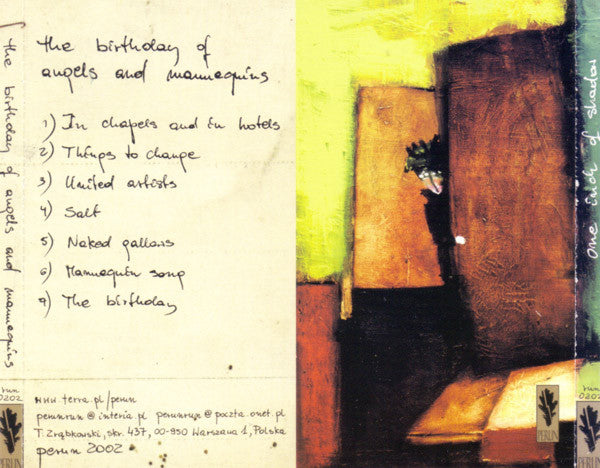 the birthday of angels and mannequins
the birthday of
angels and mannequins
1) In chapels and in hotels
2) Things to change
3) United artists
4) Salt
5) Naked gallows
6) Mannequin song
7) The birthday
www.terra.pl/perun
perunrun@interia.pl perunruje@poczta.onet.pl
T. Ząbkowski, skr. 437, 00-950 Warszawa 1, Polska
perun 2002
run
0202
PERUN
one inch of shadow
run
0202
PERUN